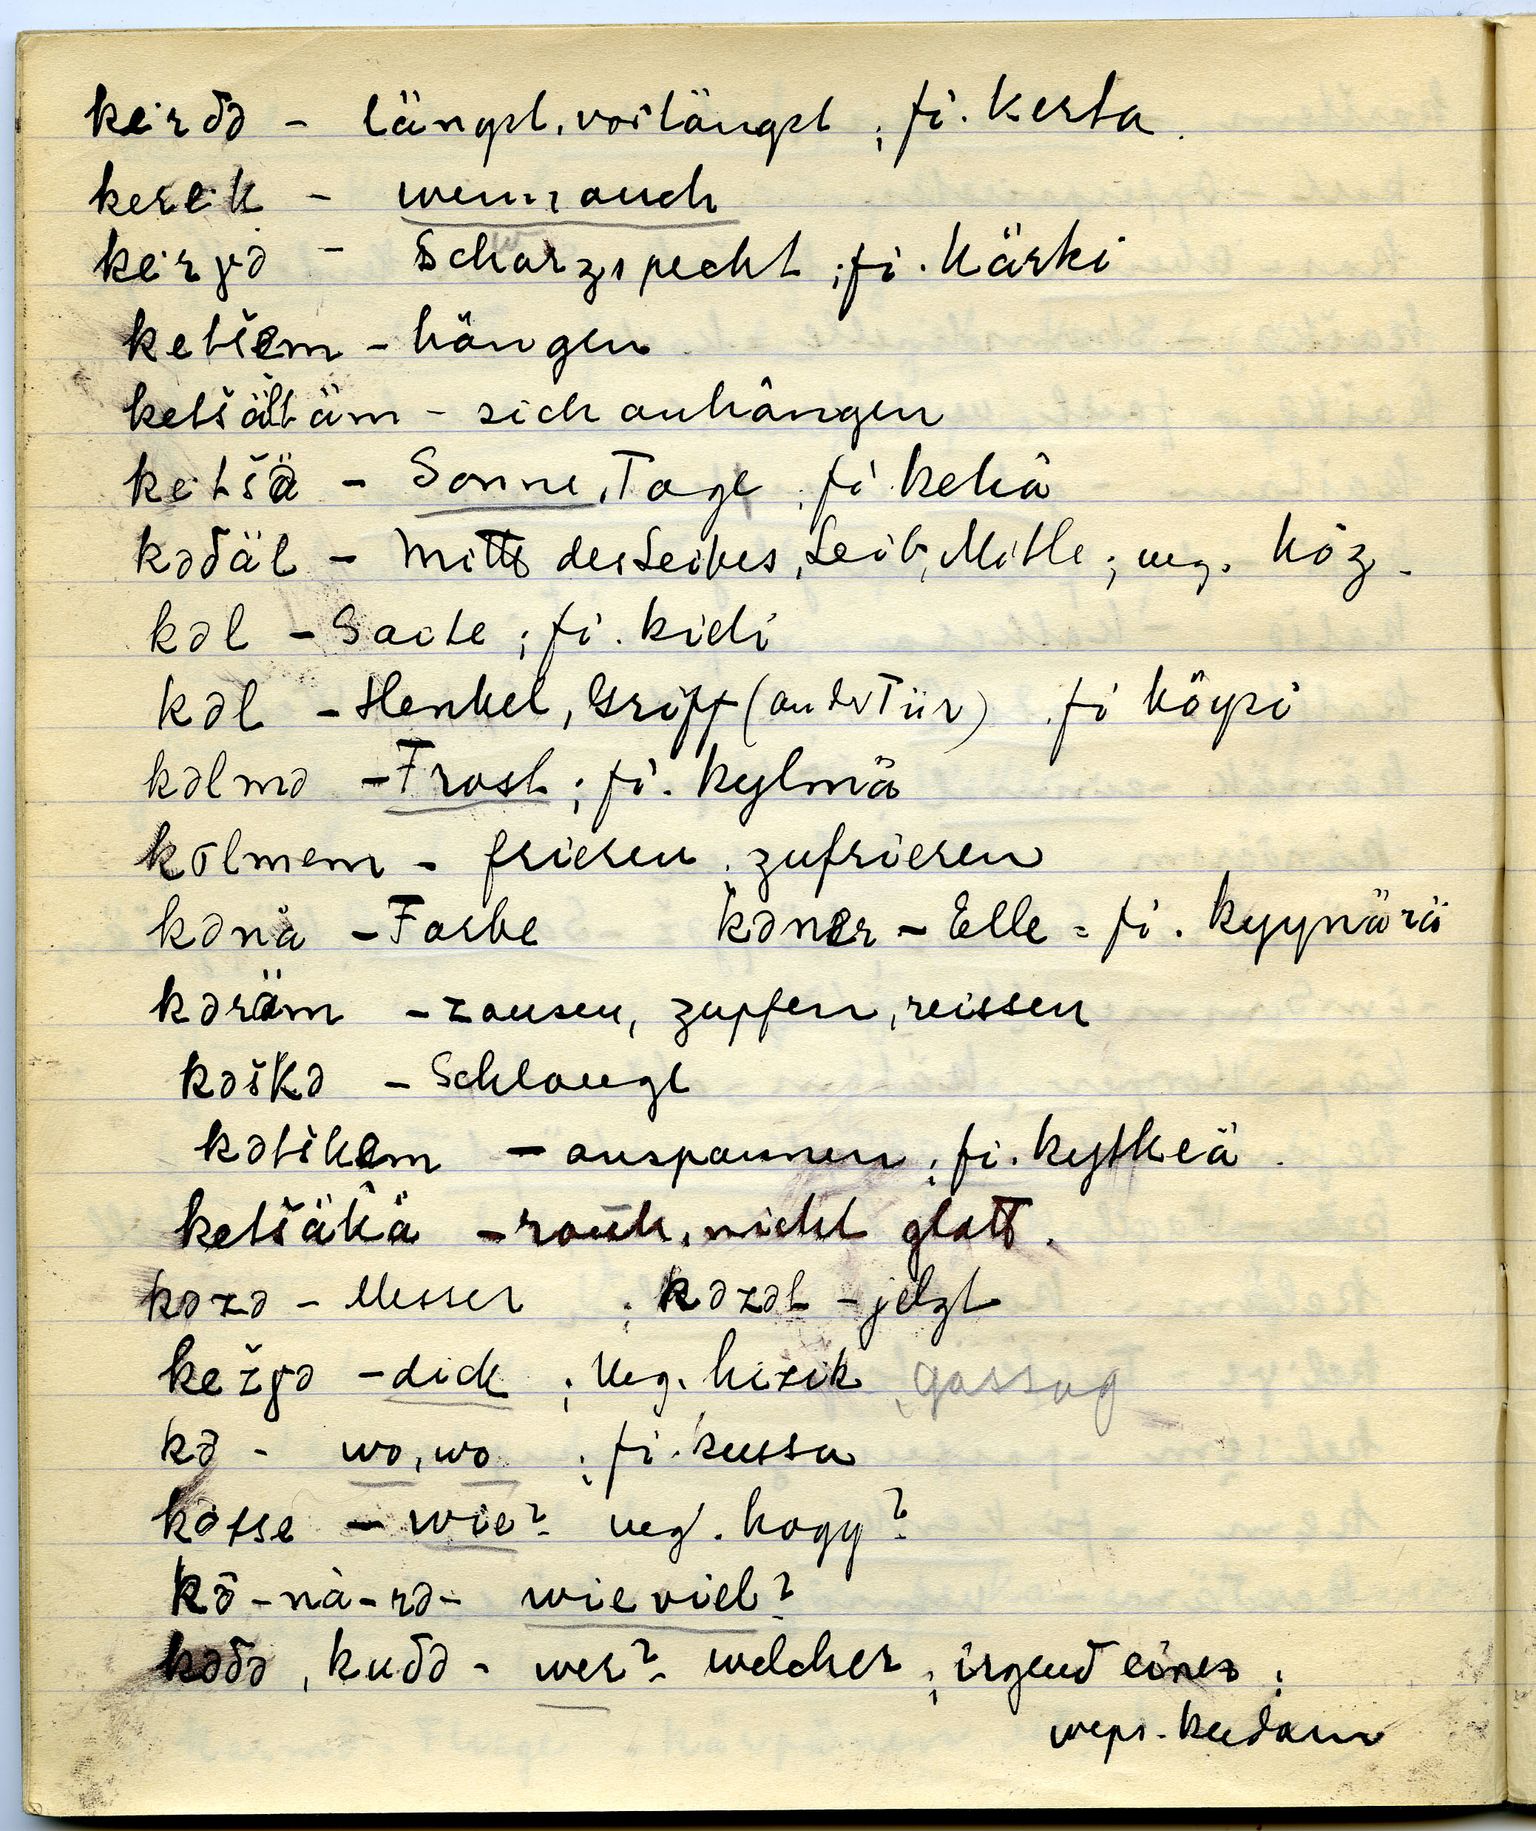 keirδə – längst, vorlängst ; fi. kerta.
kerek – wenn auch
kerγə – Schwarzspecht ; fi. kärki
ketšem – hängen
ketšältäm – sich anhängen
ketšä – Sonne, Tage ; fi. kehä
kəδäl – Mitte des Leibes, Leib, Mitte ; ung. köz.
kəl – Saite ; fi. kieli
kəl – Henkel, Griff (an der Tür) , fi köysi
kəlmə – Frost ; fi. kylmä
kəlmem – frieren , zufrieren
kənä – Farbe kəner – Elle = fi. kyynärä
kəräm – zausen, zupfen, reissen
kəškə – Schlange
kətškem – anspannen ; fi. kytkeä.
ketšäkä – rauh, nicht glatt.
kəzə – Messer ; kəzət – jetzt
kežγə – dick ; Ung. hizik , gassag
kə – wo, wo ; fi. kussa
kətse – wie? ung. hogy?
kə-nä-rə – wieviel?
kəδə, kuδə – wer? welcher ; irgend einer ;
weps. kudam